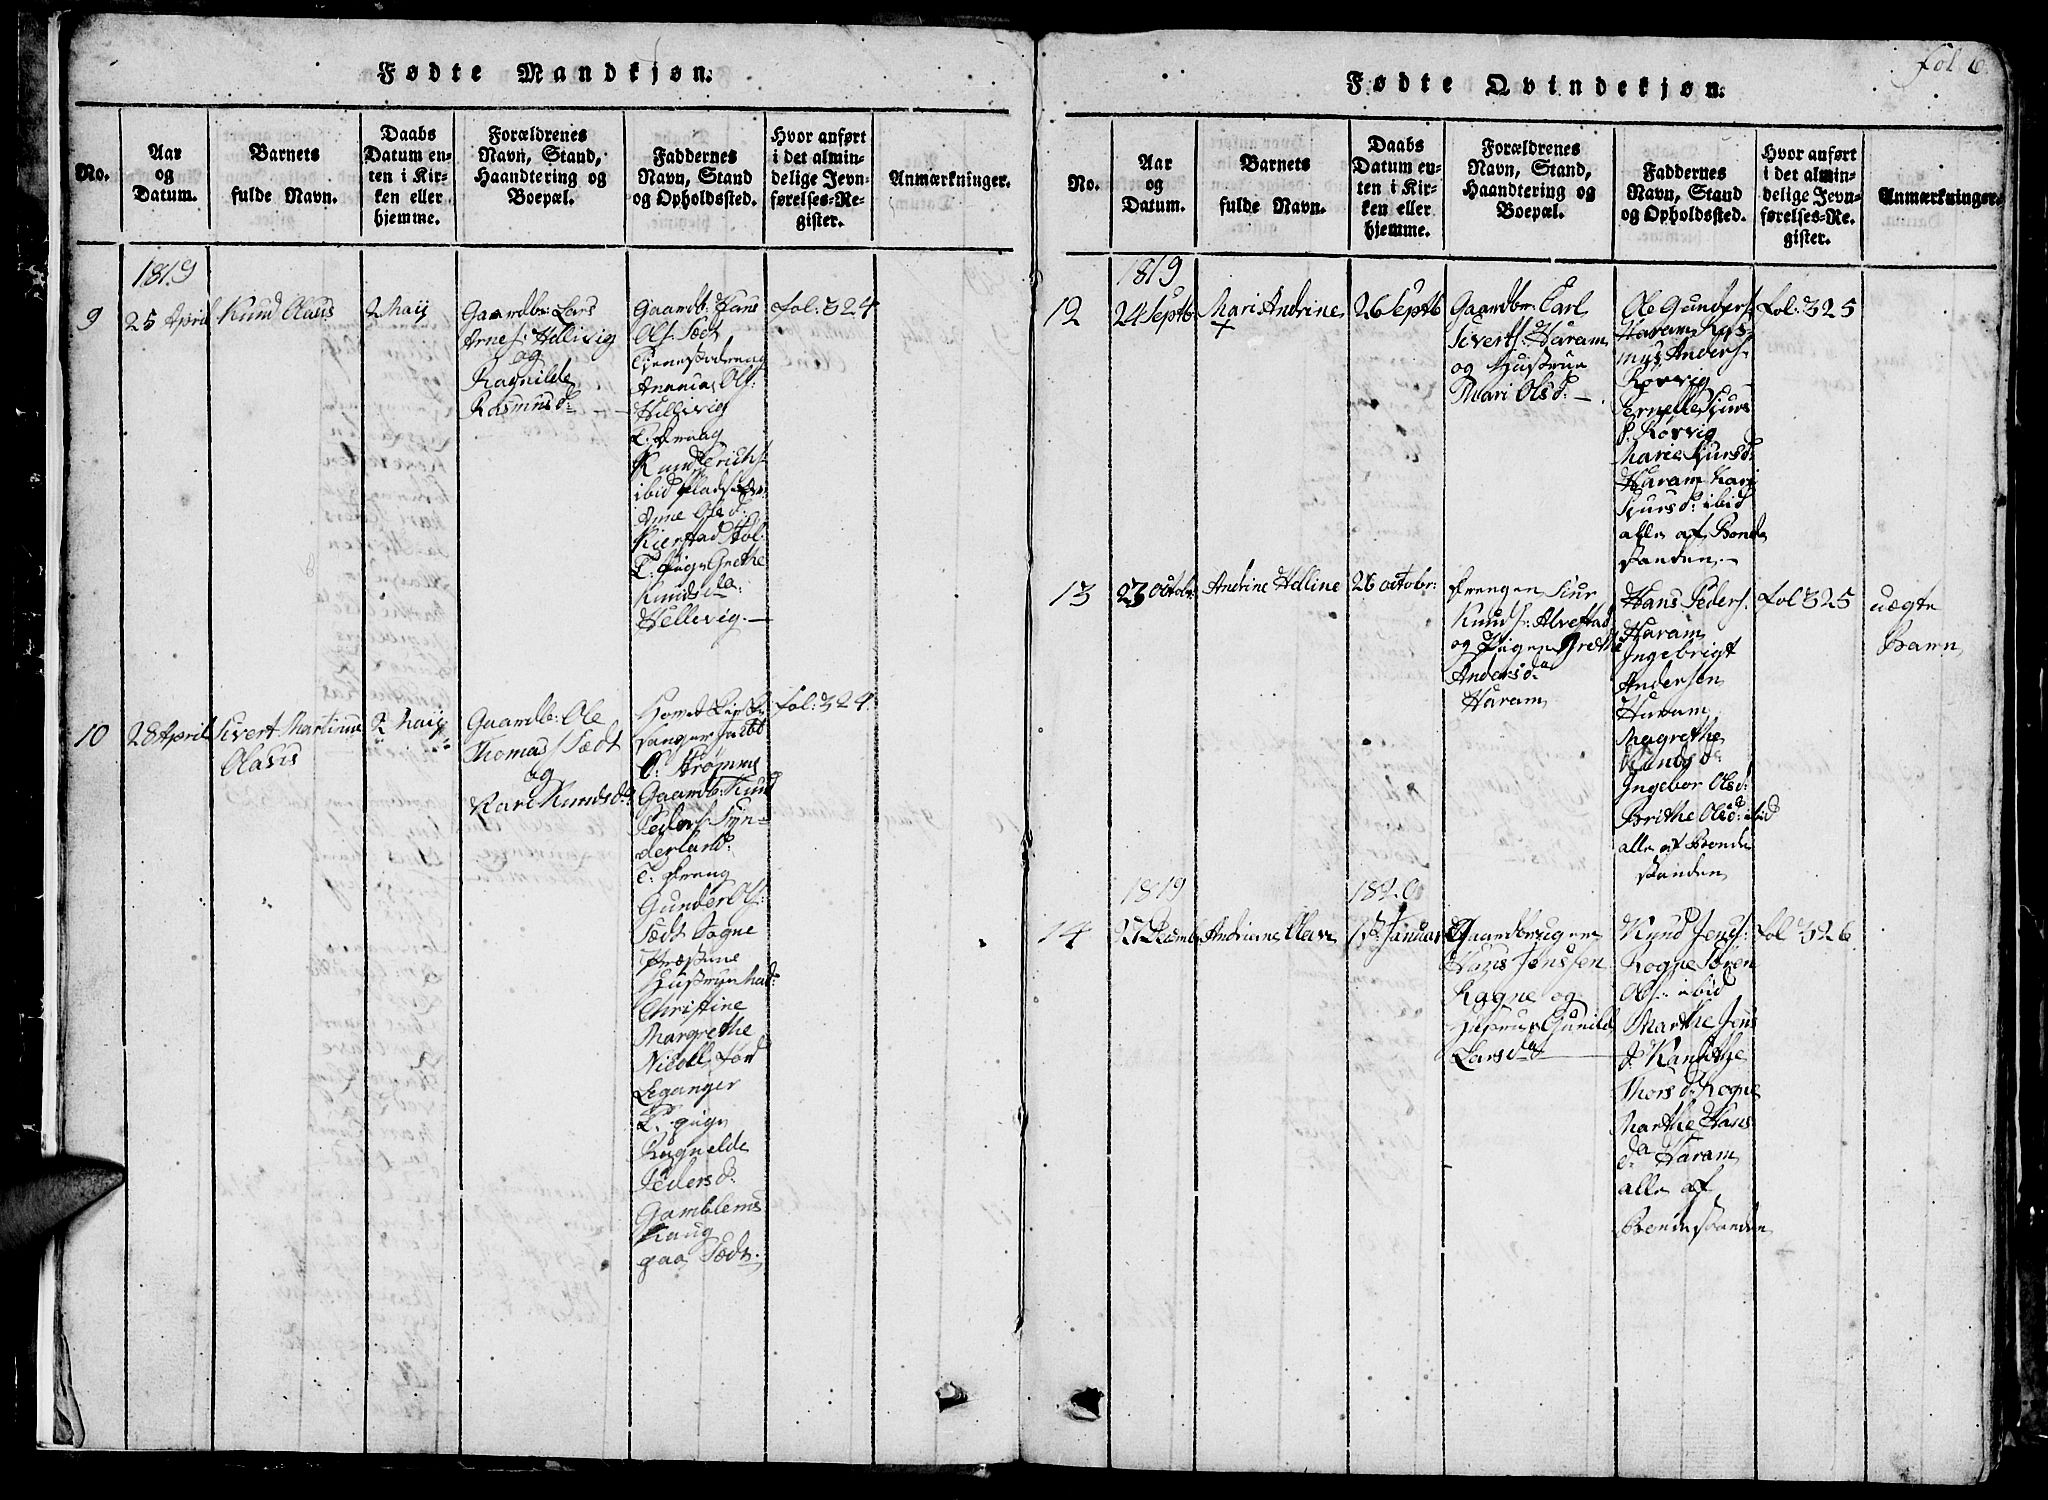 Fødte Mandkjøn.
No.
Aar
og
Datum.
Barnets
fulde Navn.
Daabs
Datum en-
ten i Kir-
ken eller
hjemme.
Forældrenes
Navn, Stand,
Haandtering og
Boepæl.
Faddernes
Navn, Stand
og Opholdssted.
Hvor anført
i det almin-
delige Jevn-
førelses-Re-
gister.
Anmærkninger.
1819
9
25 April
Knud Olaus
2 Maij
Gaardb: Lars
Arnes: Hellivig
og
Ragnilde
Rasmusd:
Gaardb: Hans
Ols: Sædt
Tjenestedreng
Ananias Ols:
Hellivig
T. dreng
Knud Erichs:
ibid
Anne Olsd:
Kierstad
T. Pige Grethe
Knudsda:
Hellevig.
fol: 324
10
28 April
Sivert Martinus
Olaus
2 Maij
Gaardb: Ole
Thomass Sædt
og
Kari Knudsd:
sanger Jacob
O: Strømme
Gaardb: Knud
Peders: Syn-
derland:
T: dreng
Gunder Ols:
Sædt Sogne
Præstens
Hustrue Mad:
Christine
Margrethe
Leganger
T. pige
Ragnelde
Pedersd:
Gamblems
Haug
paa Sædt.
fol: 324.
fol 6.
Fødte Qvindekjøn.
No.
Aar
og
Datum.
Barnets
fulde Navn.
Daabs
Datum en-
ten i Kir-
ken eller
hjemme.
Forældrenes
Navn, Stand,
Haandtering og
Boepæl.
Faddernes
Navn, Stand
og Opholdssted.
Hvor anført
i det almin-
delige Jevn-
førelses-Re-
gister.
Anmærkninger.
1819
12
24 Septb:
Mari Andrine
26 Septb
Gaardbr: Carl
Siverts: Haram
og Hustrue
Mari Olsd:
Ole Gunders:
Haram Ras-
mus Anders:
Rørvig
Pernelle Siurs
d: Rørvig
Marie Siursd:
Haram Kari
Siursd: ibid
alle af Bonde
standen
fol: 325
13
23 octobr:
Andrine Helline
26 octobr:
drengen Siur
Knuds: Alvestad
og Pigen Grethe
Andersda
Haram
Hans Peders:
Haram
Ingebrigt
Andersen
Haram
Magrethe
Ingebor Olsd:
Brithe Olsd: ibid
alle af Bonde
standen
fol 325
uægte
Barn
1819
1820
14
Andriane Olave
Januar
Gaardbruger
Hans Jenssen
Rogne og
Hustrue Gunild
Larsda
Knud Jens:
Rogne Søren
Ols: ibid
Marthe Jens
Thorsd: Rogne
Marthe Hans
da Haram
alle af
Bondestanden
fol 326